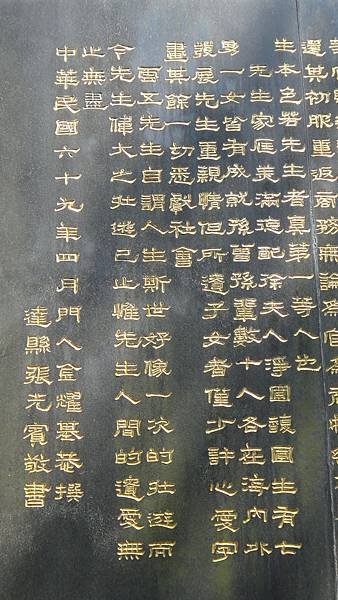 還其初服重返商務無論為官為商將
生本色若先生者真第一等人也
先生家庭美滿德配徐夫人淨圃韻圃生有七
男一女皆有成就孫曾孫輩數十人各在海內外
發展先生重親情但所遺子女者僅少許心愛字
畫其餘一切悉獻社會
雲五先生自謂人生斯世好像一次的壯遊而
今先生偉大之壯遊已止惟先生人間的遺愛無
止無盡
中華民國六十九年四月門人金耀基恭撰
達縣張光賓敬書